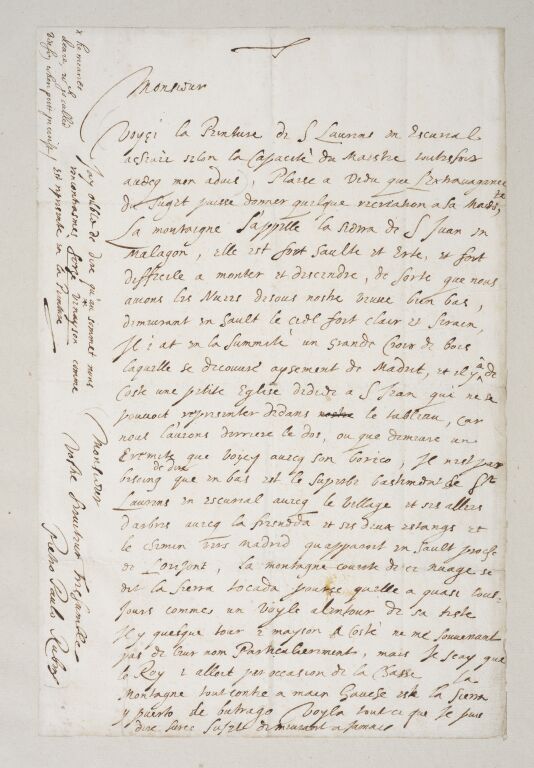 Monsieur
Voyçi la Peinture de S Laurens en Escurial
achevée selon la Capacité du Maistre toutesfois
avecq mon advis, Plaise a Dieu que L'extravagance
du Suget puisse donner quelque recreation a sa Ma.té,
La montaigne s'appelle la Sierra de S Juan en
Malagon, elle est fort haulte et erte, et fort
difficile a monter et descendre, de sorte que nous
avions les Nuees desous nostre veuue bien bas,
demeurant en hault le ciel fort clair et serain,
Il i at en la summité un Grande Croix de bois
laquelle se decouvre aysement de Madrit, et il y a de
coste une petite Eglise dediée a S Jean qui ne se
pouvoit representer dedans le tableau, car
nous l'avions derriere le dos, ou que demeure un
Eremite que voicy avecq son borico, Il n'est pas
de dire
besoing que en bas est le superbe bastiment de St
Laurens en escurial avecq le Village et ses allées
d'arbres avecq la fresneda et ses deux estangs et
le chemin vers Madrid qu apparoit en hault proche
de l'orisont, la montaigne couverte de ce nuage se
dit la Sierra tocada pource quelle a quasi tous-
Jours comme un Voyle alentour de sa teste
Il y quelque tour e mayson a Costé ne me souvenant
pas de leur nom Particulierement, mais Je sçay que
le Roy i alloit per occasion de la Chasse La
Montagne tout contre a main Gauche est la Sierra
y puerto de butrago Voyla tout ce que Je puis
dire sur ce Suget demeurant a jamais
Monsieur
Vostre serviteur treshumble
Pietro Pauolo Rubens
J'ay oblié de dire qu'au sommet nous
rencontrasmes force venayson comme
est representé en la Peinture
x he meanes
deare, as is called
when putt in crust